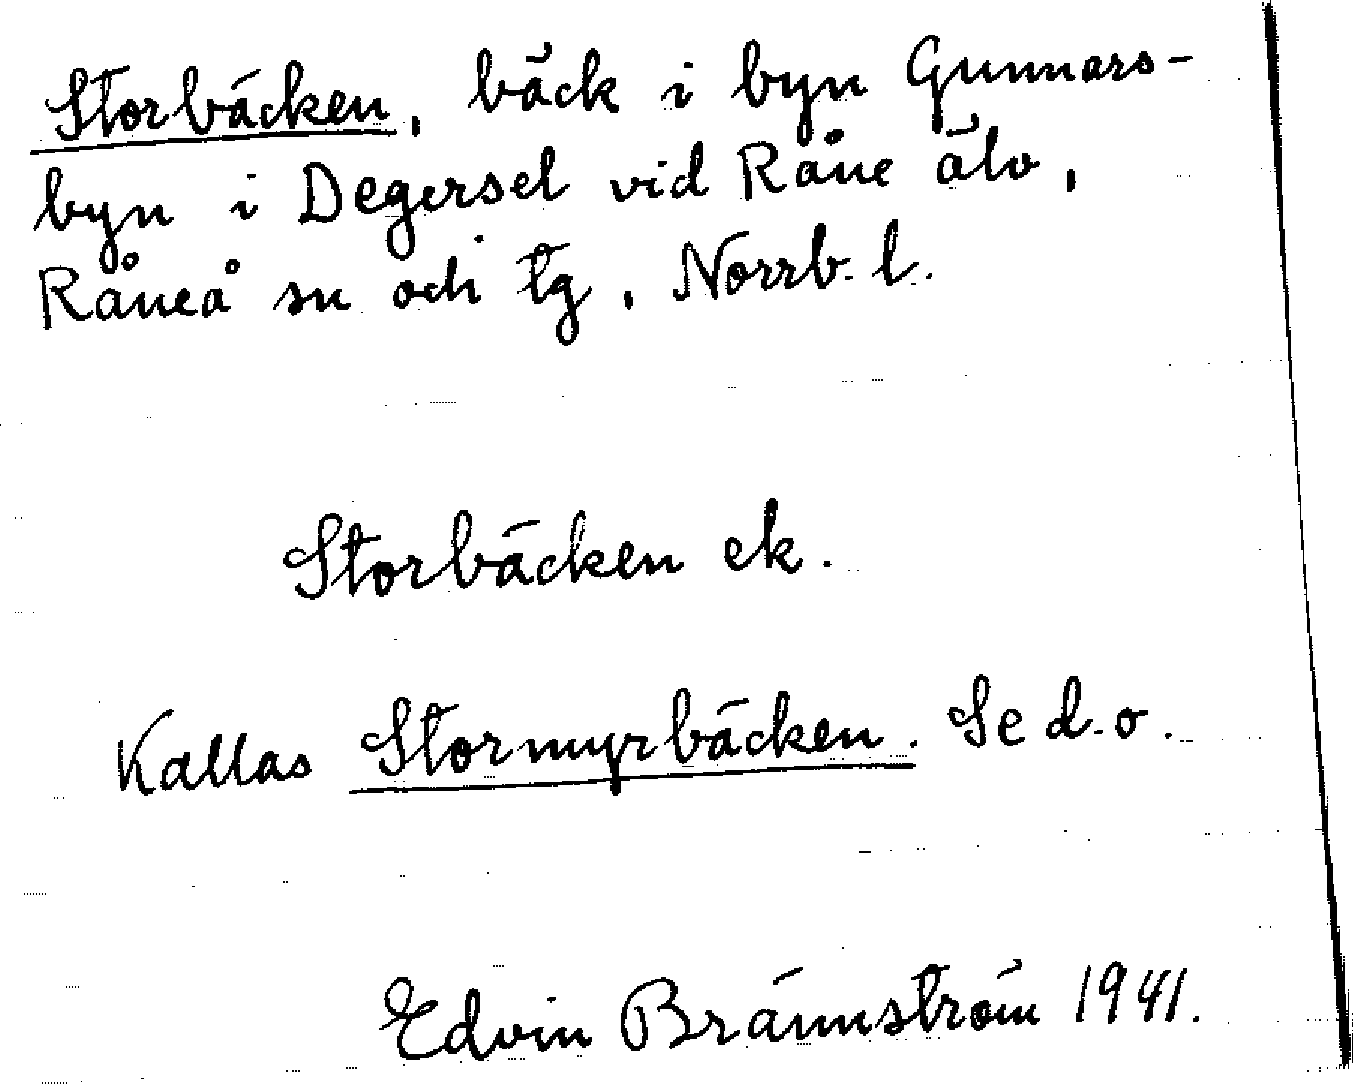 Storbäcken, bäck i byn Gunnars-
byn i Degersel vid Råne älv,
Råneå sn och tg, Norrb. l.
Storbäcken ek.
Kallas Stormyrbäcken. Se d.o.
Edvin Brännström 1941.